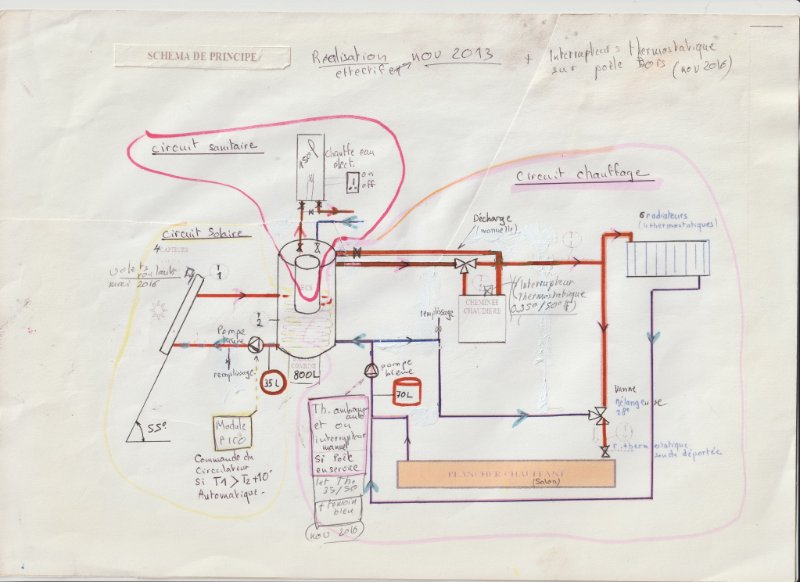 SCHEMA DE PRINCIPE
Réalisation nov 2013
effectife
+ Interrupteurs thermostatique
sur poële Bois (nov 2016)
Circuit sanitaire
150 l
chauffe eau
elect.
on
off
Circuit chauffage
Circuit Solaire
4 CAPTEURS
volets
roulants
mai 2016
T
1
T
2
ECS
Décharge
(manuelle)
6 radiateurs
(4 thermostatiques)
T
CHEMINÉE
CHAUDIERE
(Interrupteur
thermostatique
remplissage
Pompe
remplissage
35L
800L
pompe
bleue
70L
Vanne
Mélangeuse
28°
thermostatique
sonde déportée
55°
Module
PICO
Commande du
Circulateur
Si T1 > T2 +10°
Automatique.
Th. ambiance
auto
et ou
interrupteur
manuel
Si Poële
en service
35/50
+ temoin
bleu
nov 2016
PLANCHER CHAUFFANT
(Salon)